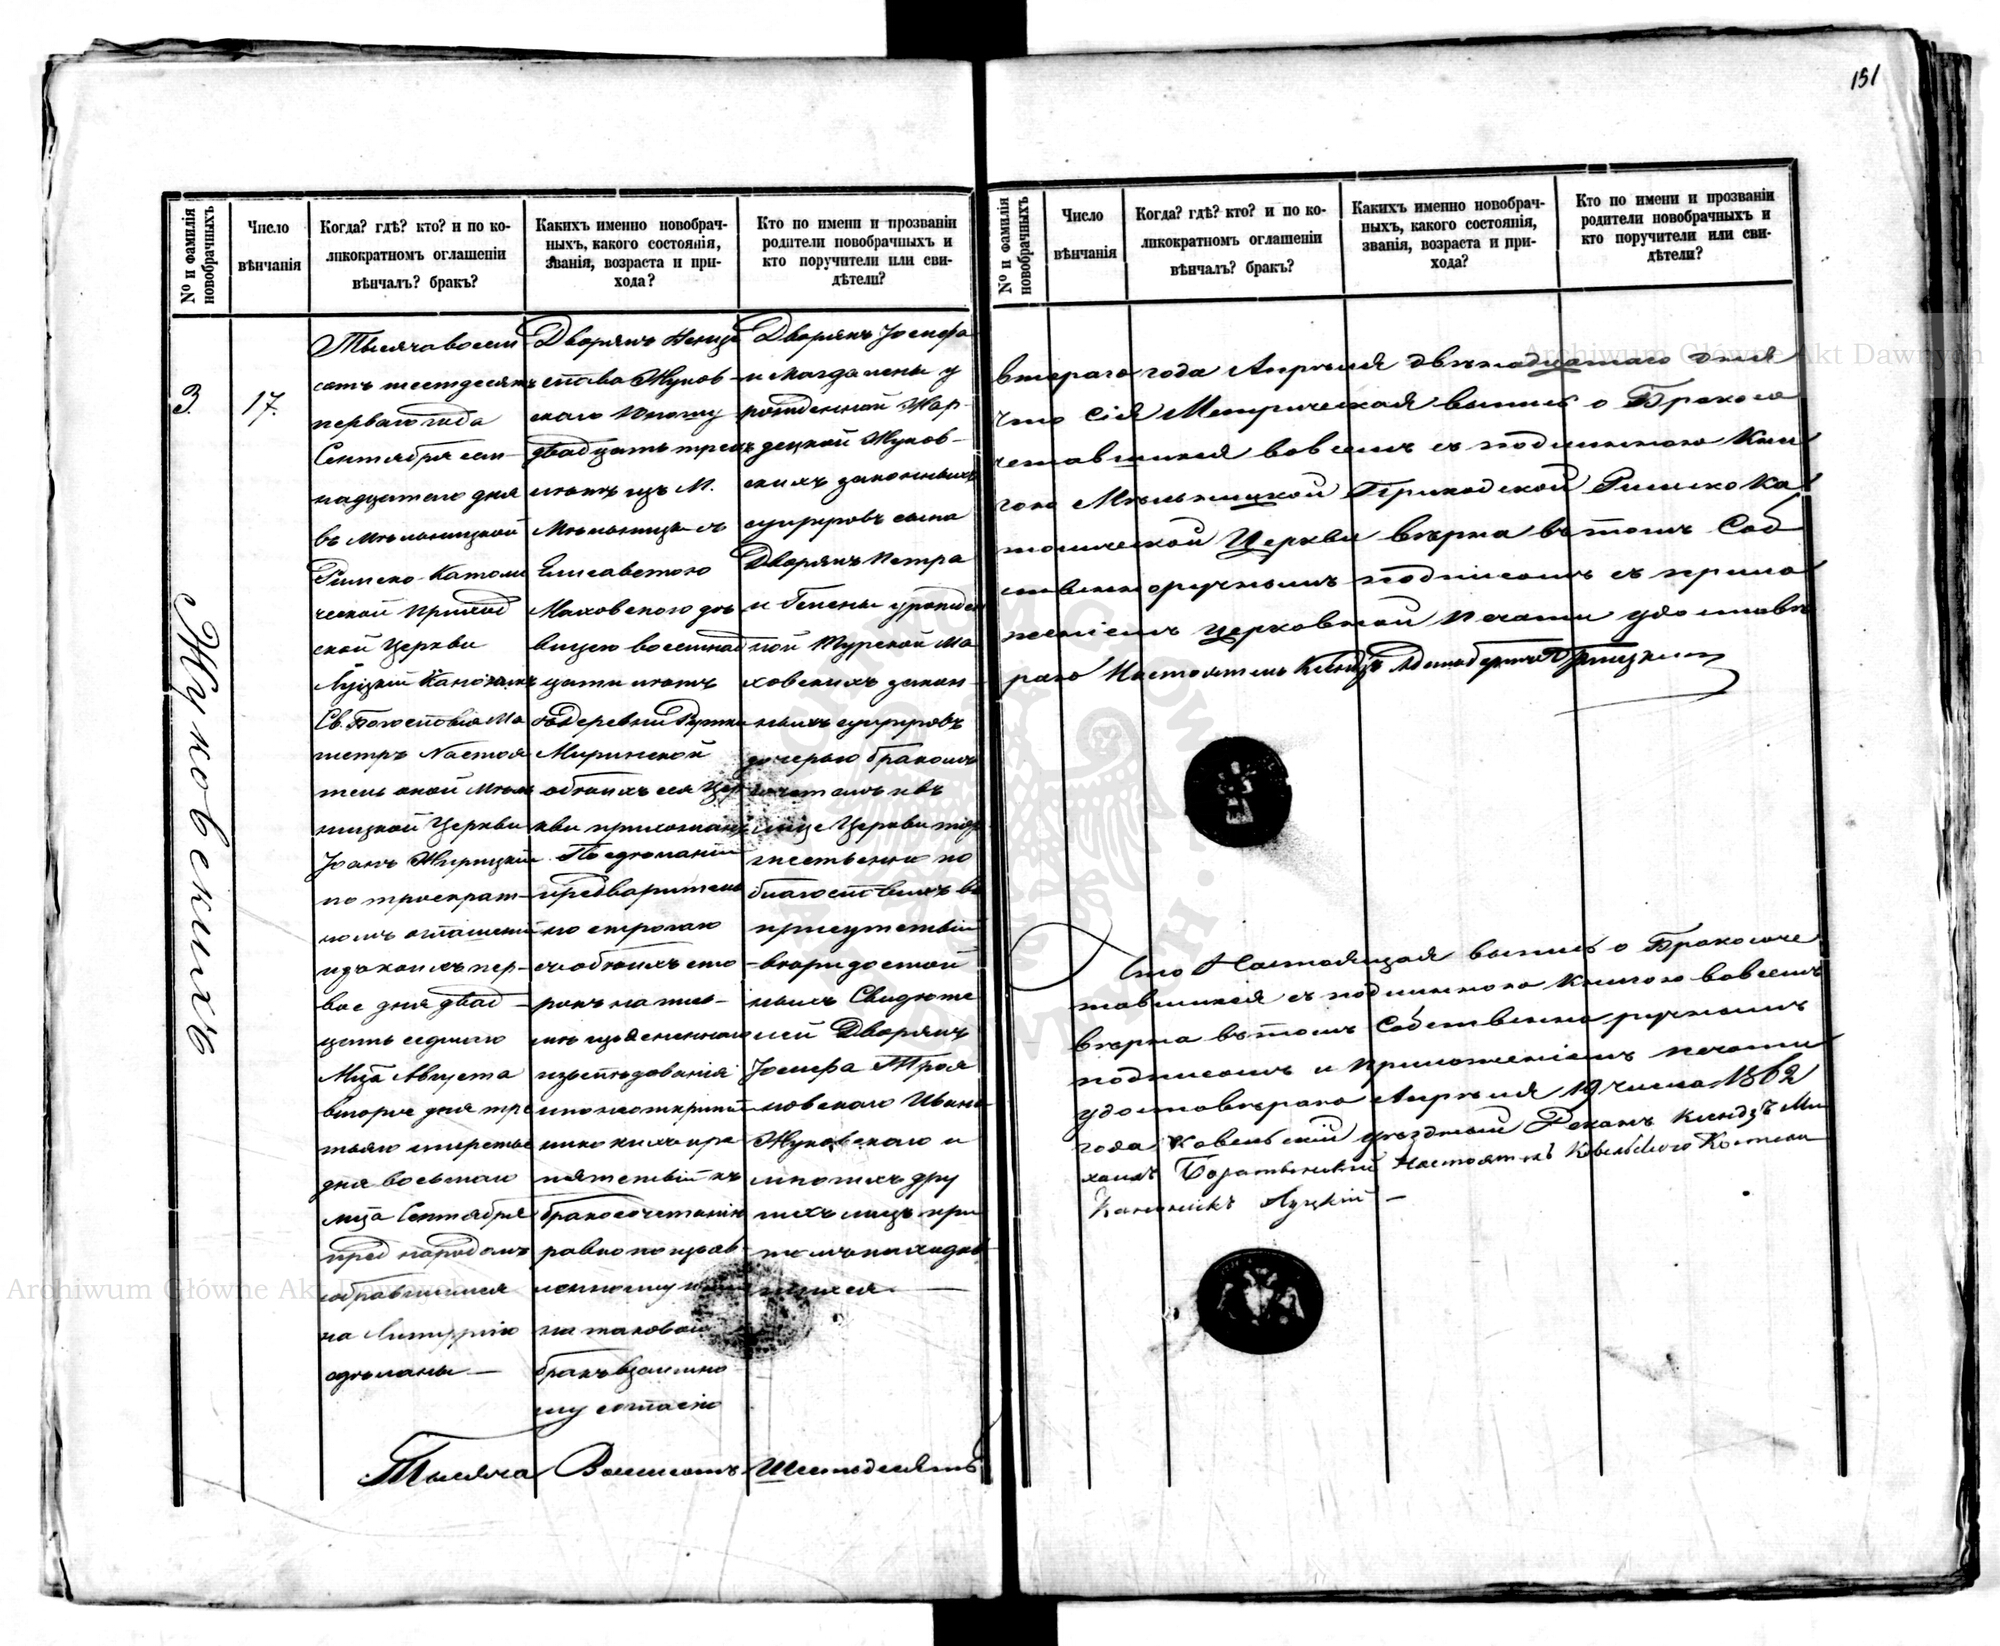 151
№ и фамилія новобрачныхъ
Число вѣнчанія
Когда? гдѣ? кто? и по ко-
ликократномъ оглашеніи
вѣнчалъ? бракъ?
Какихъ именно новобрач-
ныхъ, какого состоянія,
званія, возраста и при-
хода?
Кто по имени и прозваніи
родители новобрачныхъ и
кто поручители или сви-
дѣтели?
3
Жуковскихъ
17.
Тысяча восем
сотъ шестдесятъ
перваго года
Сентября сем-
надцатого дня
въ Мѣльницкой
Римско-Католи
ческой Приход
ской Церкви
Луцкій Каноникъ
Св. Богословія Ма
гистръ Настоя
тель оной Мѣль
ницкой Церкви
Іоанъ Жирицкій
по троекрат-
номъ оглашеніи
изъ коихъ пер-
вое дня двад-
цать седмого
Мца Августа
второе дня
третье
дня восьмого
мца Сентября
пред народомъ
собравшимся
на Литургію
сдѣланы —
Дворянъ
Жуков-
ского Юношу
двадцать трехъ
лѣтъ изъ М.
Мѣльницы съ
Елисаветою
Маховского дѣ
вицею восемнад
цати лѣтъ
Деревни
Миринской
обоихъ сея Цер
кви прихожанъ
По сдѣланіи
предварительно
строгаго
съ обоихъ сто
ронъ на пись-
мѣ изъясненнаго
изслѣдованія
и по неоткрытіи
никакихъ пре
пятствій къ
бракосочетанію
равно по изъяв-
ленному
на таковой
бракъ взаимно
му согласію
Дворянъ Іосифа
и Магдалены у
рожденной Жар-
децкой Жуков-
скихъ законныхъ
супруговъ сына
Дворянъ Петра
и Елены урожден
ной Турской Ма
ховскихъ закон-
ныхъ супруговъ
дочерью бракомъ
сочеталъ и въ
лице Церкви тор
жественно по
благословилъ въ
присутствіи
вѣры достой
ныхъ Свидѣте
лей Дворянъ
Іосифа Троя
новского Ивана
Жуковского и
многихъ дру
гихъ лицъ при
томъ находив-
шихся. —
Тысяча Восемсотъ Шестьдесятъ
№ и фамилія новобрачныхъ
Число вѣнчанія
Когда? гдѣ? кто? и по ко-
ликократномъ оглашеніи
вѣнчалъ? бракъ?
Какихъ именно новобрач-
ныхъ, какого состоянія,
званія, возраста и при-
хода?
Кто по имени и прозваніи
родители новобрачныхъ и
кто поручители или сви-
дѣтели?
втораго года Апрѣля двѣнадцатаго дня
что сія Метрическая выпись о Бракосо
четавшихся вовсемъ съ подлинною Кни
гою Мѣльницкой Приходской Римско Ка
толической Церкви вѣрна въ томъ Соб
ственноручнымъ подписомъ съ прило
женіемъ церковной печати удостовѣ
ряю Настоятель Ксендзъ
Что Настоящая выпись о Бракосоче
тавшихся съ подлинною Книгою вовсемъ
вѣрна въ томъ Собственно ручнымъ
подписомъ и приложеніемъ печати
удостовѣряю Апрѣля 19 числа 1862
года Ковельскій уѣздный Деканъ Ксендзъ Ми
хаилъ Настоятель Ковельского Костела
Каноникъ Луцкій —
Archiwum Główne Akt Dawnych
Archiwum Główne Akt Dawnych